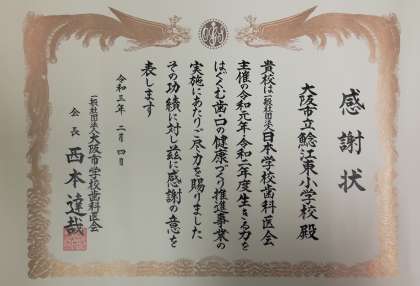 感謝状
大阪市立鯰江東小学校 殿
貴校は一般社団法人日本学校歯科医会
主催の令和元年・令和二年度生きる力を
はぐくむ歯・口の健康づくり推進事業の
実施にあたりご尽力を賜りました
その功績に対し茲に感謝の意を
表します
令和三年 二月 四日
一般社団法人大阪市学校歯科医会
会長 西本達哉